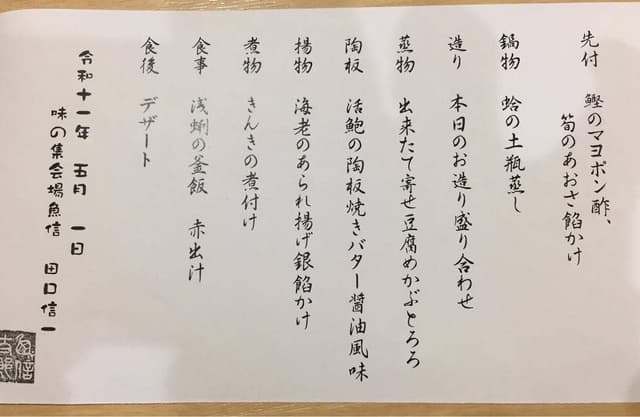 先付　鰹のマヨポン酢、
筍のあおさ餡かけ
鍋物　蛤の土瓶蒸し
造り　本日のお造り盛り合わせ
蒸物　出来たて寄せ豆腐めかぶとろろ
陶板　活鮑の陶板焼きバター醤油風味
揚物　海老のあられ揚げ銀餡かけ
煮物　きんきの煮付け
食事　浅蜊の釜飯　赤出汁
食後　デザート
令和十一年　五月　一日
味の集会場魚信　田口信一